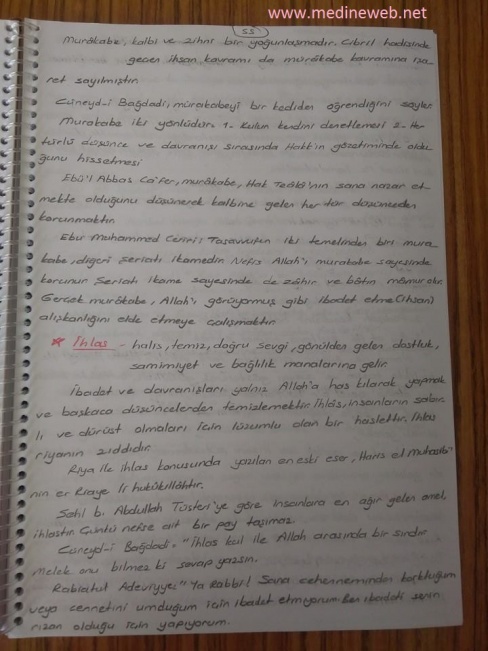 www.medineweb.net
55
Murâkabe, kalbî ve zihnî bir yoğunlaşmadır. Cibril hadisinde
geçen ihsan kavramı da murâkabe kavramına işa-
ret sayılmıştır.
Cüneyd-i Bağdadi, mürakabeyi bir kediden öğrendiğini söyler
Murakabe iki yönlüdür. 1- Kulun kendini denetlemesi 2- Her
türlü düşünce ve davranışı sırasında Hakk'ın gözetiminde oldu-
ğunu hissetmesi
Ebü'l Abbas Ca'fer, murâkabe, Hak Teâlâ'nın sana nazar et-
mekte olduğunu düşünerek kalbine gelen her tür düşünceden
korunmaktır.
Ebu Muhammed Ceriri; Tasavvufun iki temelinden biri mura-
kabe, diğeri Şeriatı ikamedir. Nefis Allah'ı murakabe sayesinde
korunur. Şeriatı ikame sayesinde de zâhir ve bâtın mâmur olur.
Gerçek murâkabe, Allah'ı görüyormuş gibi ibadet etme (ihsan)
alışkanlığını elde etmeye çalışmaktır
* İhlas - halis, temiz, doğru sevgi, gönülden gelen dostluk,
samimiyet ve bağlılık manalarına gelir
İbadet ve davranışları yalnız Allah'a has kılarak yapmak
ve başkaca düşüncelerden temizlemektir. İhlâs, insanların
ve dürüst olmaları için lüzumlu olan bir haslettir. İhlas
riyanın zıddıdır.
Riya ile ihlas konusunda yazılan en eski eser, Haris el Muhasibi'
nin er Riaye li hukûkillâhtır.
Sahl b. Abdullah Tüsteri'ye göre insanlara en ağır gelen amel,
ihlastır. Çünkü nefse ait bir pay taşımaz
Cüneyd-i Bağdadi: "ihlas kul ile Allah arasında bir sırdır
Melek onu bilmez ki sevap yazsın.
Rabiatül Adeviyye: "Ya Rabbi! Sana cehenneminden korktuğum
veya cennetini umduğum için ibadet etmiyorum. Ben ibadeti senin
rızan olduğu için yapıyorum.